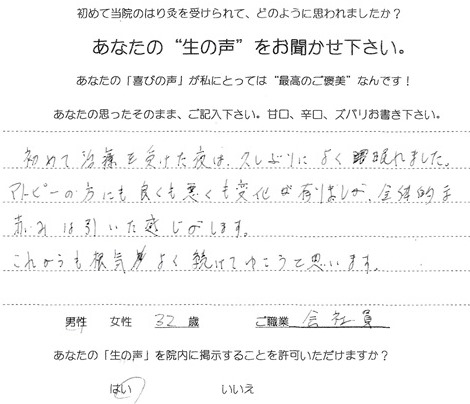 初めて当院のはり灸を受けられて、どのように思われましたか？
あなたの“生の声”をお聞かせ下さい。
あなたの「喜びの声」が私にとっては“最高のご褒美”なんです！
あなたの思ったそのまま、ご記入下さい。甘口、辛口、ズバリお書き下さい。
初めて治療を受けた夜は、久しぶりによく眠れました。
アトピーの方にも良くも悪くも変化が有りましたが、全体的な
赤みは引いた感じがします。
これからも根気よく続けてゆこうと思います。
男性 女性 32 歳 ご職業 会社員
あなたの「生の声」を院内に掲示することを許可いただけますか？
はい いいえ